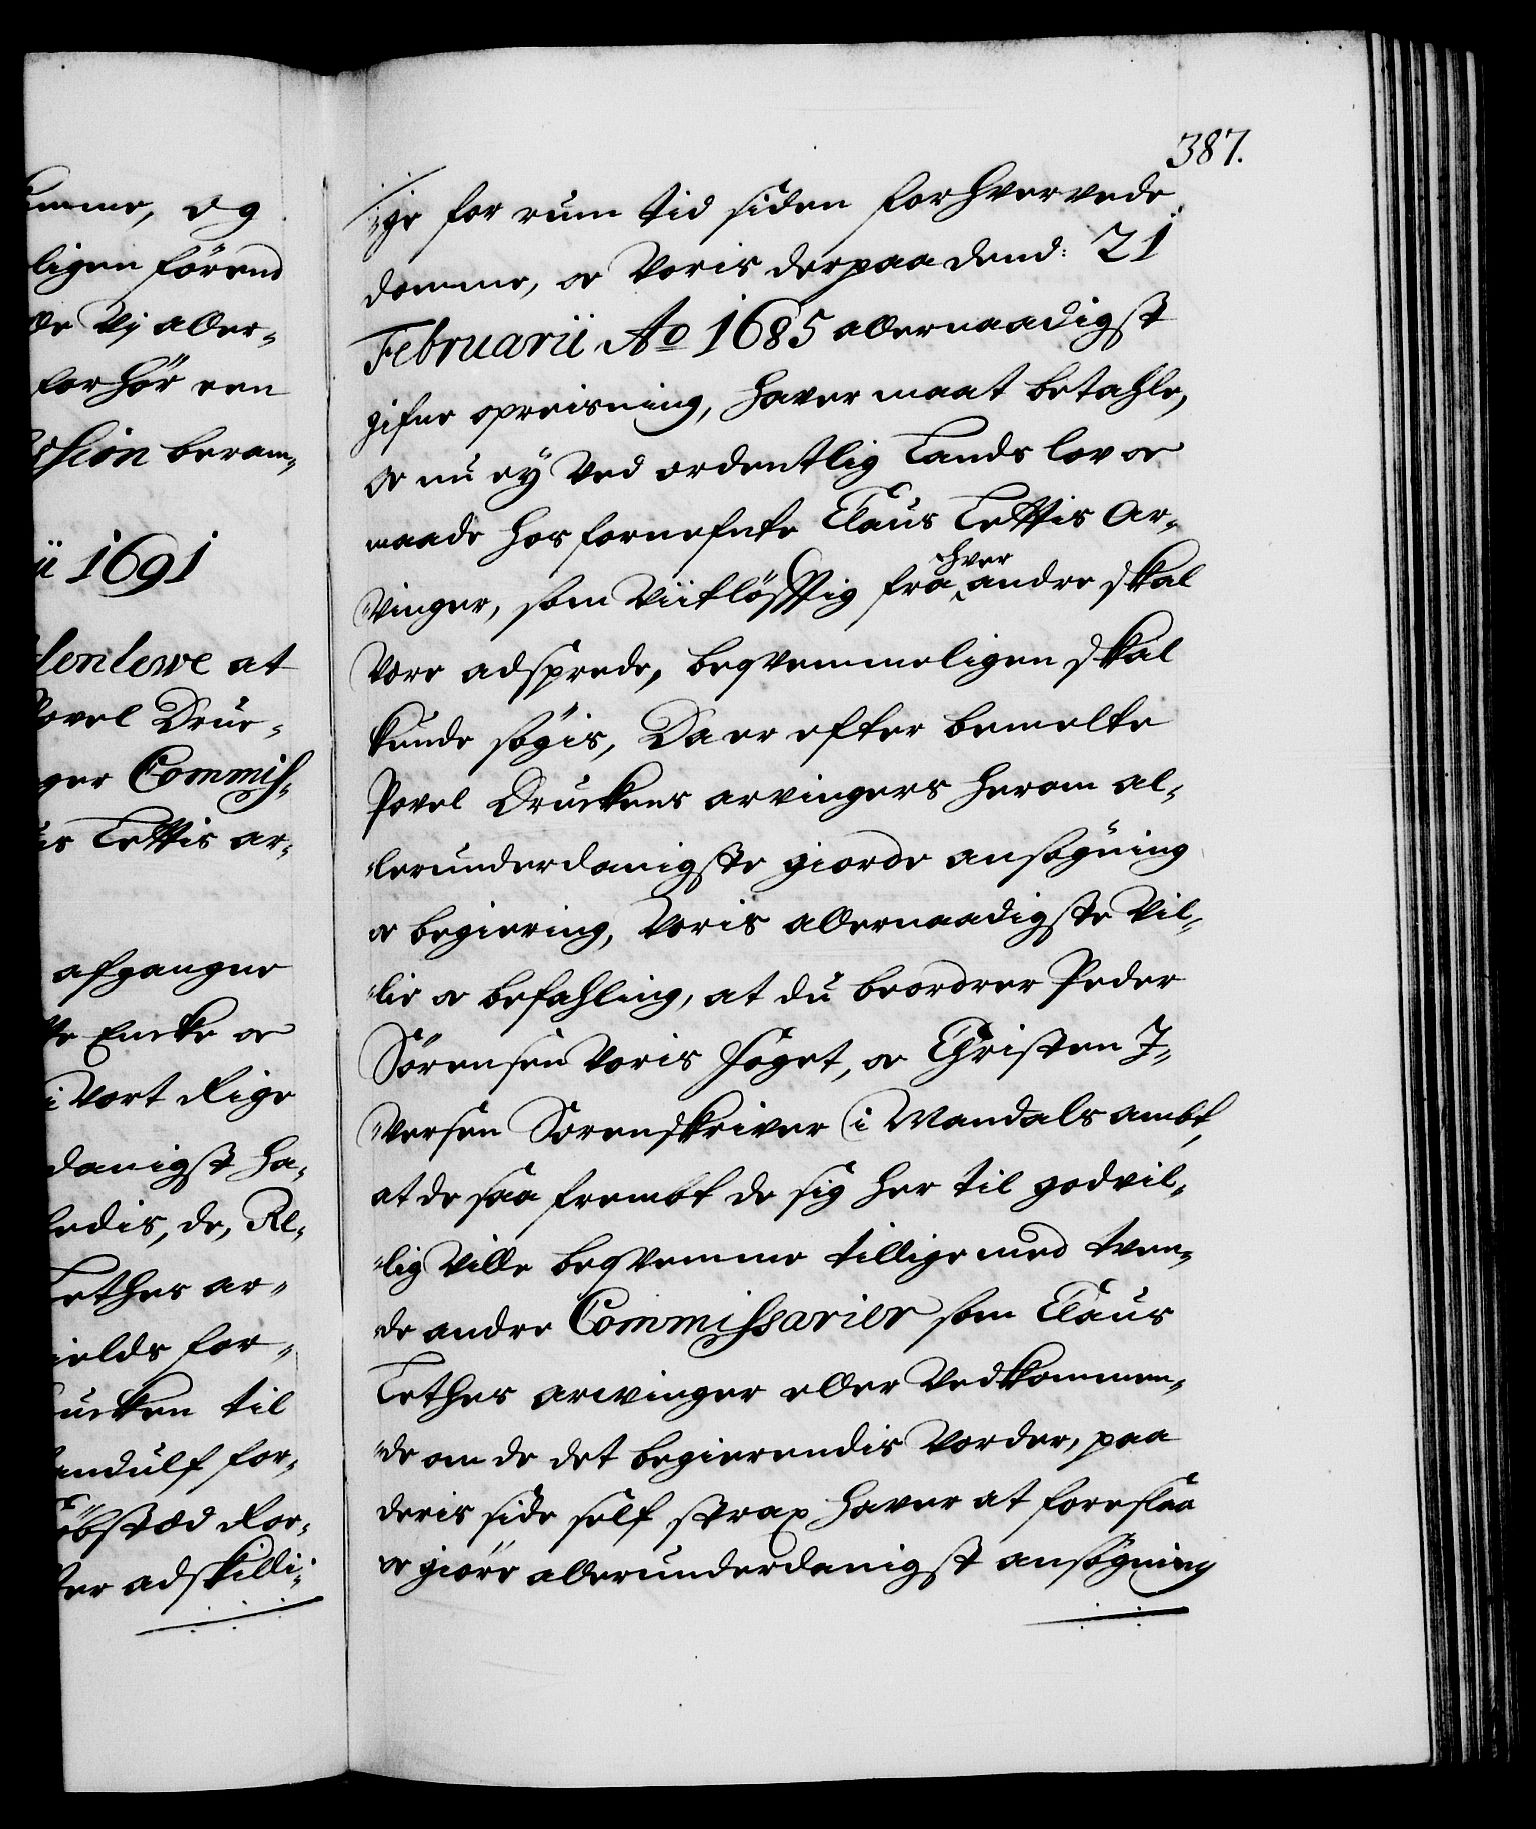 emme, og
ligen førend
de Vj aller-
forhør een
ssion beram-
ii 1691
denlewe at
Povel Drue-
ger Commiss-
us Lettis ar-
afgangne
te Encke oc
i Vort Rige
danigst ha-
ledis, de, Re-
Lethes ar-
ields for-
ucken til
andulf for-
øbstæd for-
ter adskilli-
387.
ge for rum tid siden forhvervede
domme, oc Voris derpaa dend: 21
Februarii Ao 1685 allernaadigst
gifne opreisning, hafver maat betahle,
oc nu ey ved ordentlig Lands lov oc
maade hos fornefnte Claus Lettis Ar-
vinger, som viitløfftig fra hver andre skal
vere adsprede, beqvemmeligen skal
kunde søgis, Da er efter bemelte
Povel Druckens arvingers herom al-
lerunderdanigste giorde ansøgning
oc begiering, Voris allernaadigste Vil-
lie oc befahling, at du beordrer Peder
Sørensen Voris foget, oc Christen I-
versen Sorenskriver i Mandals ambt,
at de saa frembt de sig her til godvil-
lig ville beqvemme tillige med tven-
de andre Commissarier som Claus
Lethes arvinger eller Vedkommen-
de om de det begierendis vorder, paa
deris side self strax hafver at foreslaa
oc giøre allerunderdanigst ansøgning